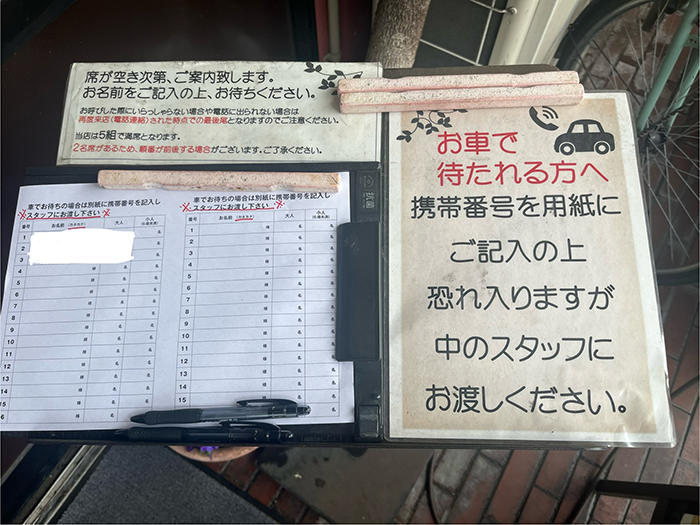 席が空き次第、ご案内致します。
お名前をご記入の上、お待ちください。
お呼びした際にいらっしゃらない場合や電話に出られない場合は
再度来店(電話連絡)された時点での最後尾となりますのでご注意ください。
当店は5組で満席となります。
2名席があるため、順番が前後する場合がございます。ご了承ください。
お車で
待たれる方へ
携帯番号を用紙に
ご記入の上
恐れ入りますが
中のスタッフに
お渡しください。
車でお待ちの場合は別紙に携帯番号を記入し
スタッフにお渡し下さい
番号 お名前 (カタカナ) 大人 小人
1 名 名
2 名 名
3 様 名 名
4 様 名 名
5 様 名 名
6 様 名 名
7 様 名 名
8 様 名 名
9 様 名 名
10 様 名 名
11 様 名 名
12 様 名 名
13 様 名 名
14 様 名 名
15 様 名 名
車でお待ちの場合は別紙に携帯番号を記入し
スタッフにお渡し下さい
番号 お名前 (カタカナ) 大人 小人
1 様 名 名
2 様 名 名
3 様 名 名
4 様 名 名
5 様 名 名
6 様 名 名
7 様 名 名
8 様 名 名
9 様 名 名
10 様 名 名
11 様 名 名
12 様 名 名
13 様 名 名
14 様 名 名
15 様 名 名
抗菌